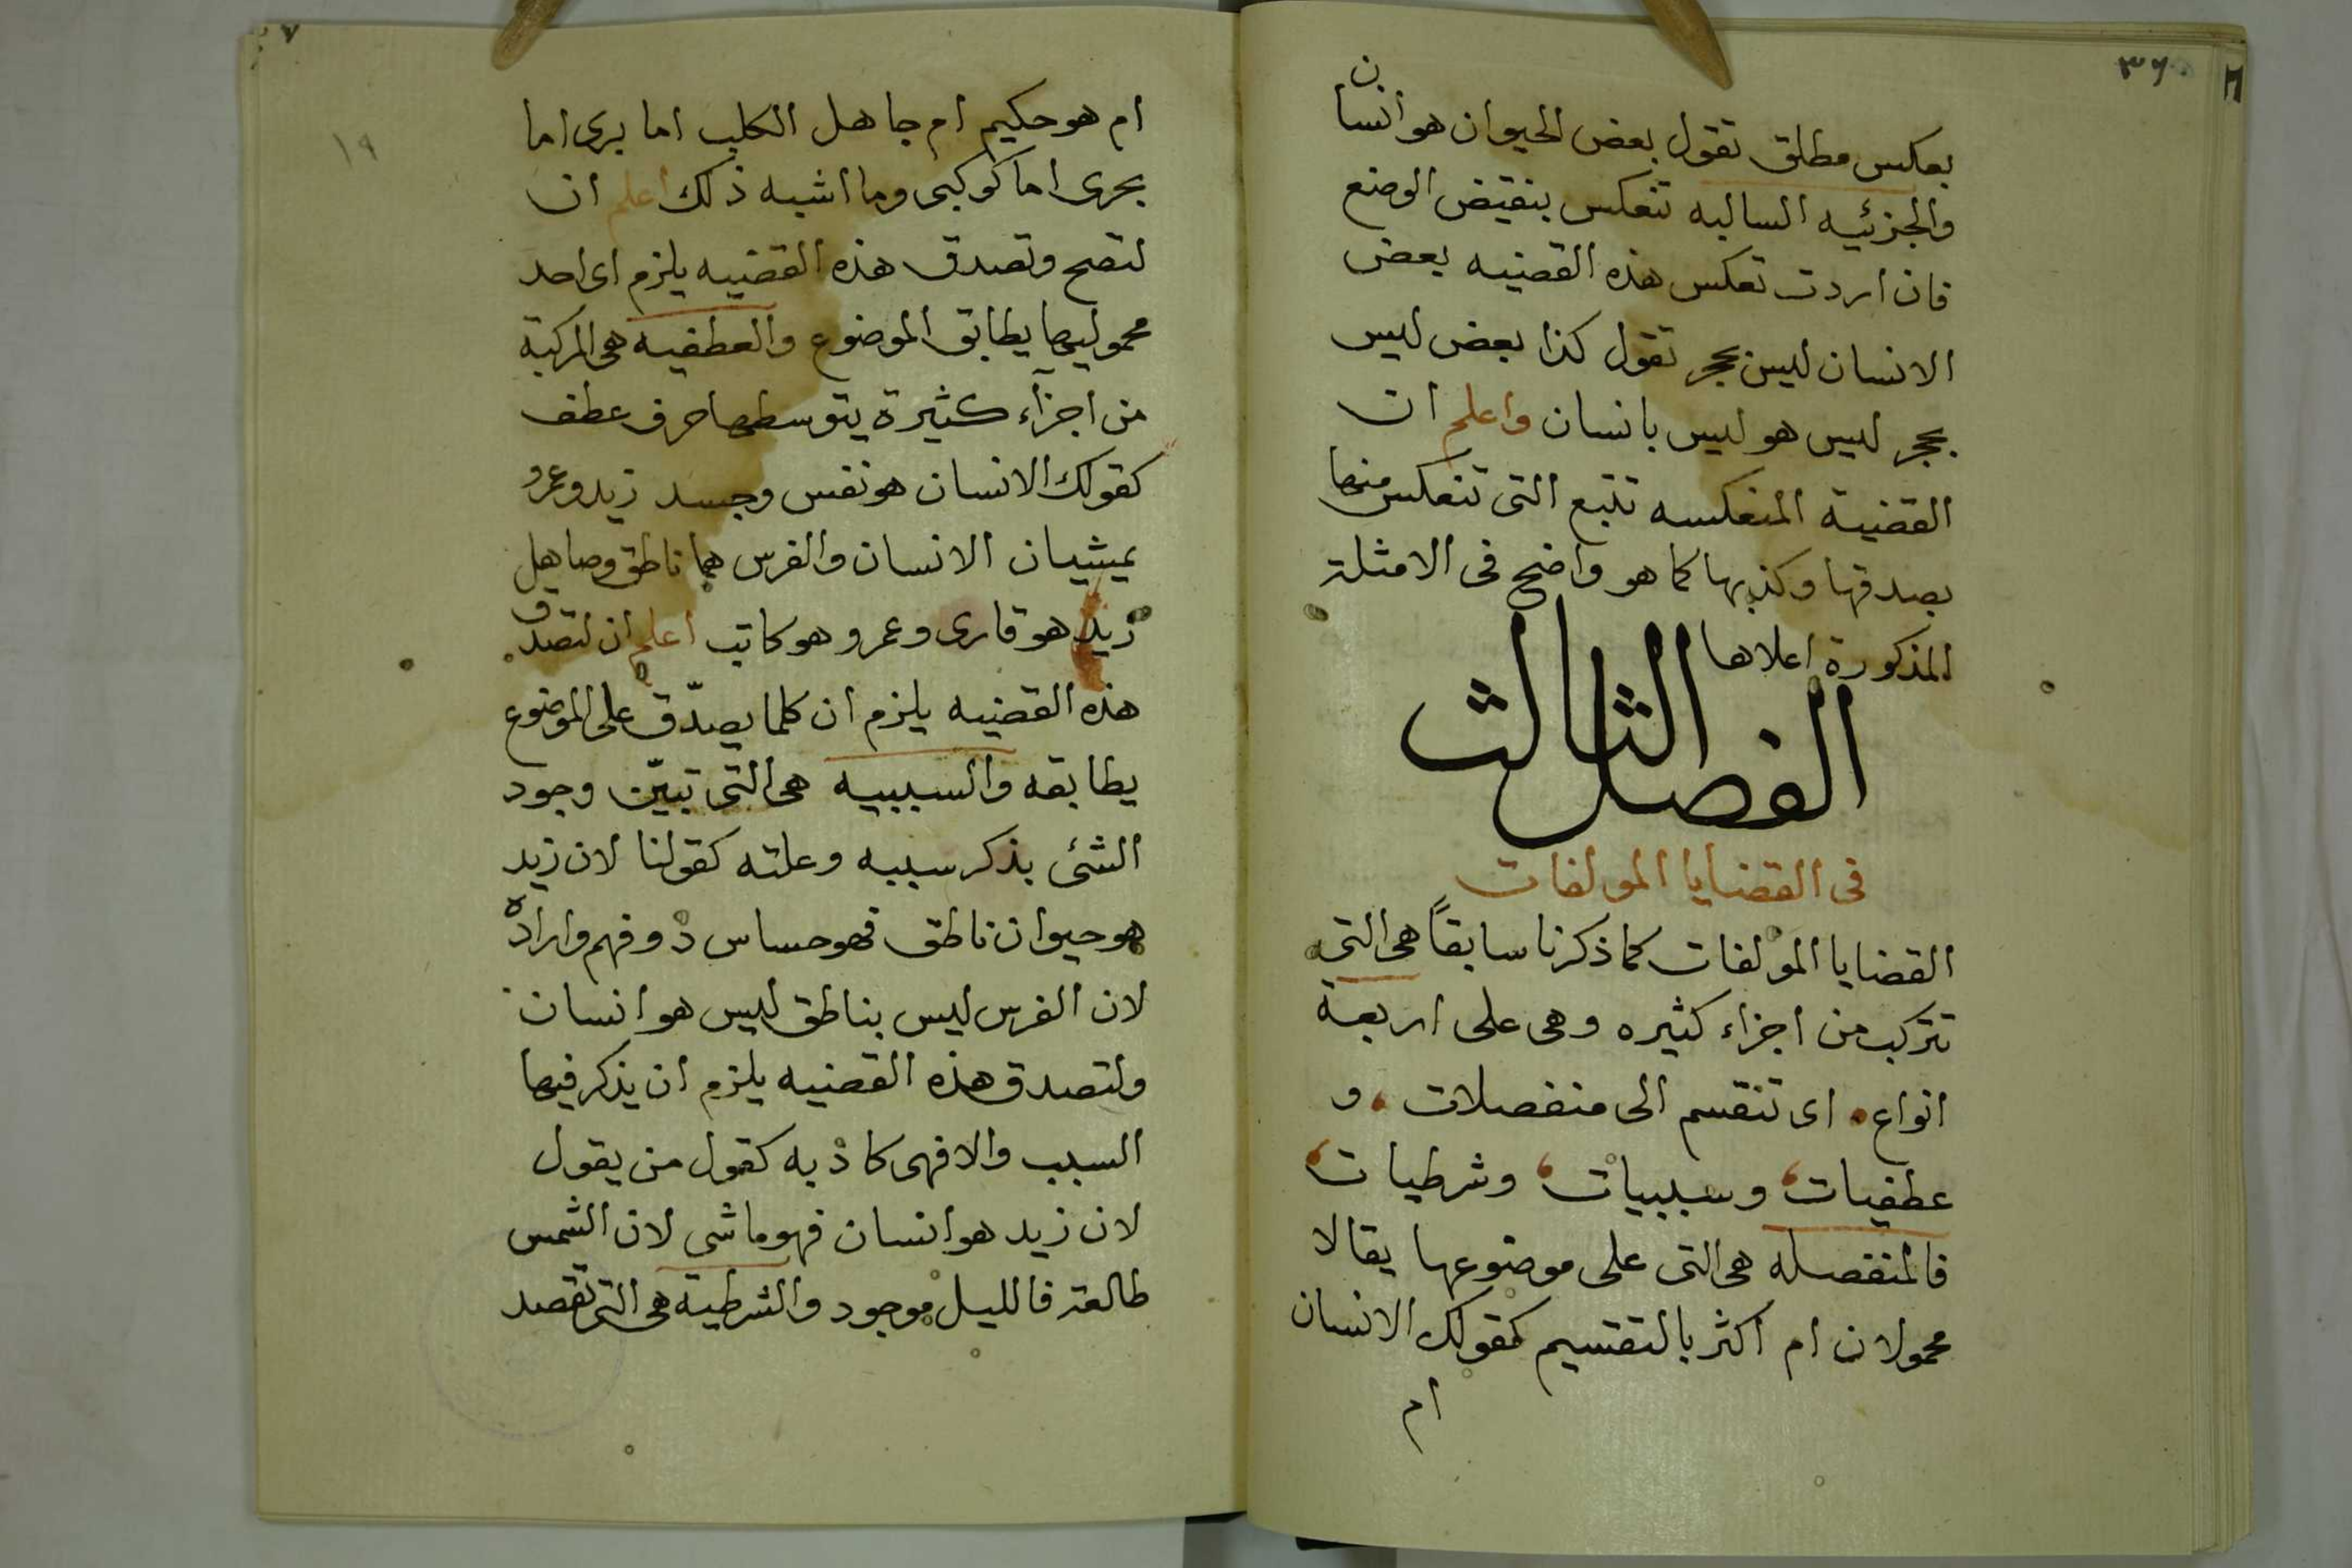 ٣٦
بعكس مطلق تقول بعض الحيوان هو انسان
والجزئيه السالبه تنعكس بنقيض الوضع
فان اردت تعكس هذه القضيه بعض
الانسان ليس بحجر تقول كذا بعض ليس
بحجر ليس هو ليس بانسان واعلم ان
القضية المنعكسه تتبع التى تنعكس منها
بصدقها وكذبها كما هو واضح فى الامثلة
المذكورة اعلاها
الفصل الثالث
فى القضايا المولفات
القضايا المولفات كما ذكرنا سابقاً هى التى
تتركب من اجزاء كثيره وهى على اربعة
انواع اى تنقسم الى منفصلات و
عطفيات وسببيات وشرطيات
فالمنفصله هى التى على موضوعها يقالا
محمولان ام اكثر بالتقسيم كقولك الانسان
ام
١٩
ام هو حكيم ام جاهل الكلب اما برى اما
بحرى اما كوكبى وما اشبه ذلك اعلم ان
لتصح وتصدق هذه القضيه يلزم اى احد
محموليها يطابق الموضوع والعطفيه هى المركبة
من اجزاء كثيرة يتوسطها حرف عطف
كقولك الانسان هو نفس وجسد زيد وعمرو
يمشيان الانسان والفرس هما ناطق وصاهل
زيد هو قارى وعمرو هو كاتب اعلم ان لتصدق
هذه القضيه يلزم ان كلما يصدّق على الموضوع
يطابقه والسببيه هى التى تبيّن وجود
الشئ بذكر سببه وعلته كقولنا لان زيد
هو حيوان ناطق فهو حساس ذو فهم وارادة
لان الفرس ليس بناطق ليس هو انسان
ولتصدق هذه القضيه يلزم ان يذكر فيها
السبب والا فهى كاذبه كقول من يقول
لان زيد هو انسان فهو ماشى لان الشمس
طالعة فالليل موجود والشرطية هى التى تقصد